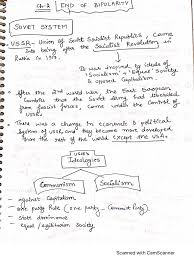 Ch-2 END OF BIPOLARITY
SOVIET SYSTEM
USSR - Union of Soviet Socialist Republics, came
into being after the Socialist Revolution in
Russia in 1917.
It was inspired by ideas of
'Socialism' + 'Equal' Society
& opposed Capitalism.
After the 2nd world war the East European
Countries that the Soviet Army had liberated
from fascist forces, came under the control of
USSR.
There was a change in economic & political
system of USSR, and they become more developed
than the rest of the world except the USA.
Ideologies
Communism Socialism
- against Capitalism
- one Party Rule (one party - Commst Party)
- State dominance
- Equal/egalitarian Society
Scanned with CamScanner